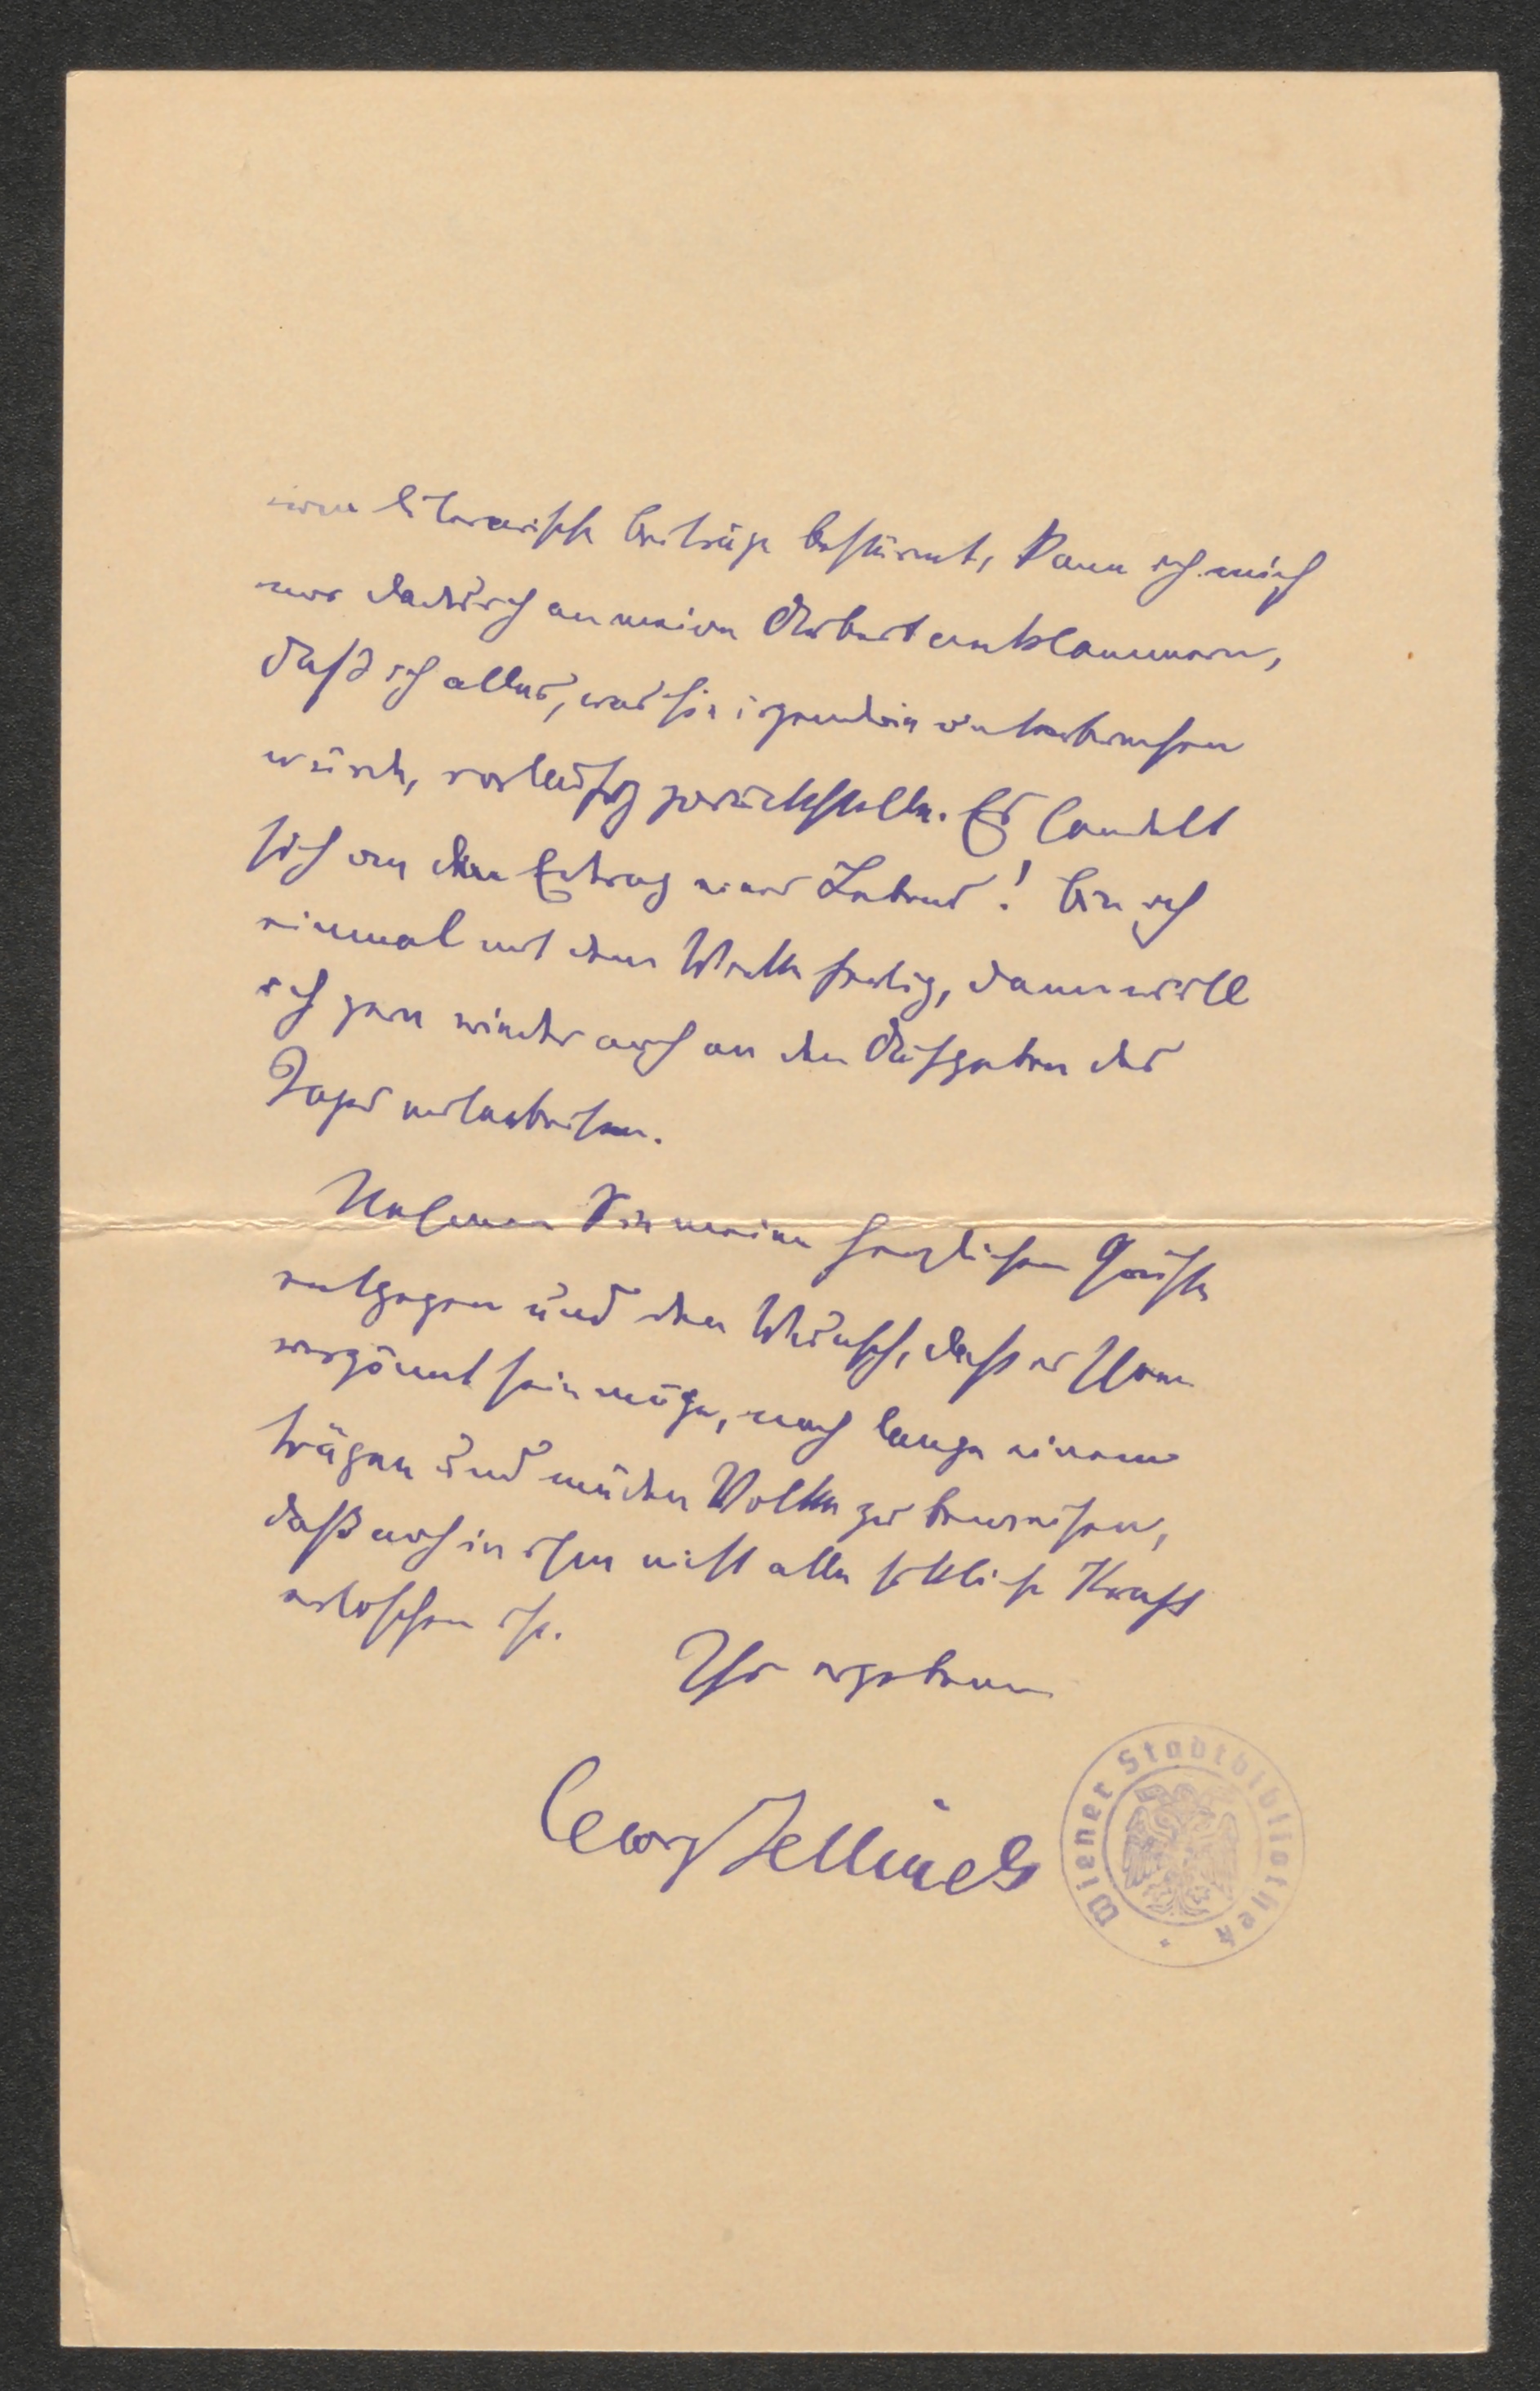 um literarische Beiträge bestürmt, kann ich mich
nur dadurch an meine Arbeit anklammern,
daß ich alles, was sie irgendwie unterbrechen
würde, vorläufig zurückstelle. Es handelt
sich um den Ertrag eines Lebens! Bin ich
einmal mit dem Werke fertig, dann will
ich gern wieder auch an den Aufgaben des
Tages mitarbeiten.
Nehmen Sie meine herzlichen Grüße
entgegen und den Wunsch, daß es Ihnen
vergönnt sein möge, noch lange einem
trägen und müden Volke zu beweisen,
daß auch in ihm nicht alle sittliche Kraft
erloschen ist.
Ihr ergebener
Georg Jellinek
Wiener Stadtbibliothek